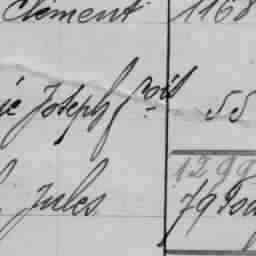 Clément 1168
ie Joseph fçois 55
1299
Jules 79